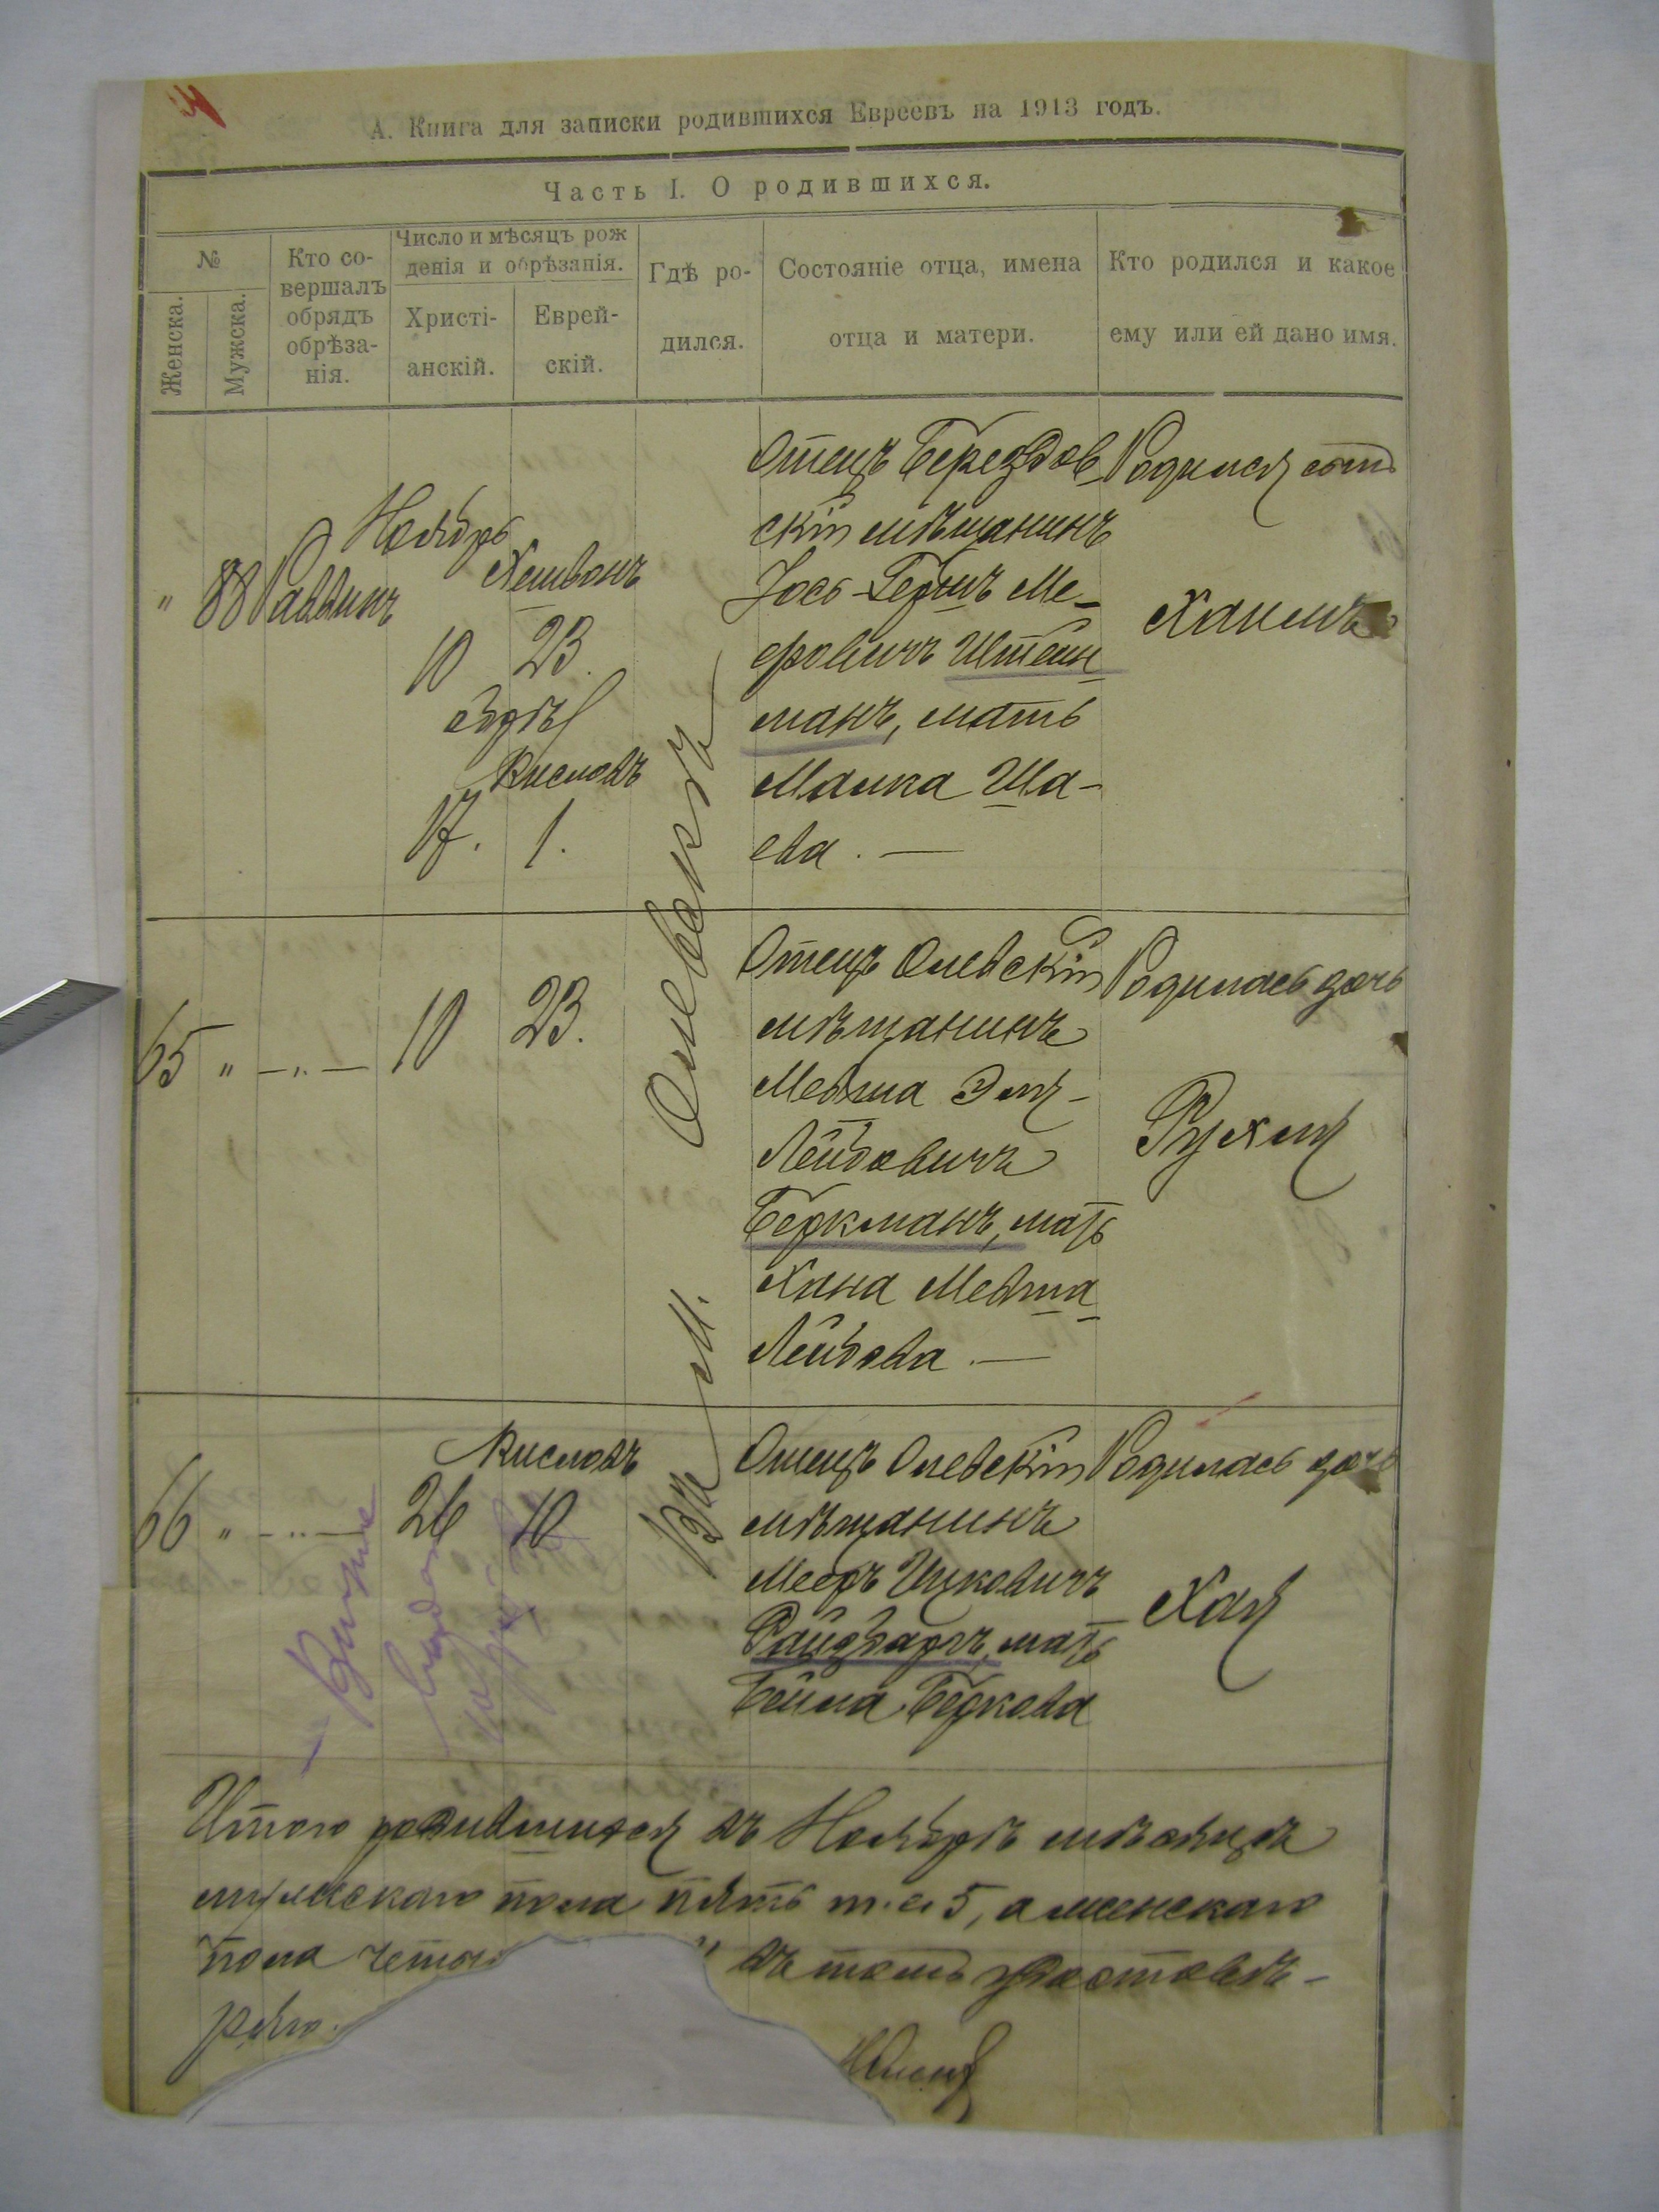 А. Книга для записки родившихся Евреевъ на 1913 годъ.
Часть I. О родившихся.
№
Женска.
Мужска.
Кто со-
вершалъ
обрядъ
обрѣза-
нія.
Число и мѣсяцъ рож
денія и обрѣзанія.
Христі-
анскій.
Еврей-
скій.
Гдѣ ро-
дился.
Состояніе отца, имена
отца и матери.
Кто родился и какое
ему или ей дано имя.
" 88 Раввинъ
Ноябрь
Хешвонъ
10 23.
обрѣз
Кисловъ
17. 1.
Въ м. Олевскѣ
Отецъ Берездов-
скій мѣщанинъ
Іось-Гершъ Ме-
еровичъ Штейн
манъ, мать
Малка Ша-
ева. —
Родился сынъ
Хаимъ
65 " — " — 10 23.
Отецъ Олевскій
мѣщанинъ
Мевша Эля-
Лейбовичъ
Беркманъ, мать
Хана Мевша
Лейбова. —
Родилась дочь
Рухля
Кисловъ
66 " — " — 26 10
Отецъ Олевскій
мѣщанинъ
Мееръ Ицковичъ
мать
Бейла Беркова
Родилась дочь
Хая
Итого родившихся въ Ноябрѣ мѣсяцѣ
мужескаго пола пять т. е. 5, а женскаго
пола четы въ томъ удостовѣ-
ряю.